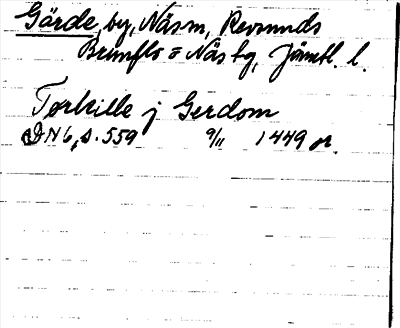 Gärde, by, Näs sn, Revsunds
Brunflo o Näs tg, Jämtl. l.
Torkille j Gerdom
DN 6, s. 559 9/11 1449 or.